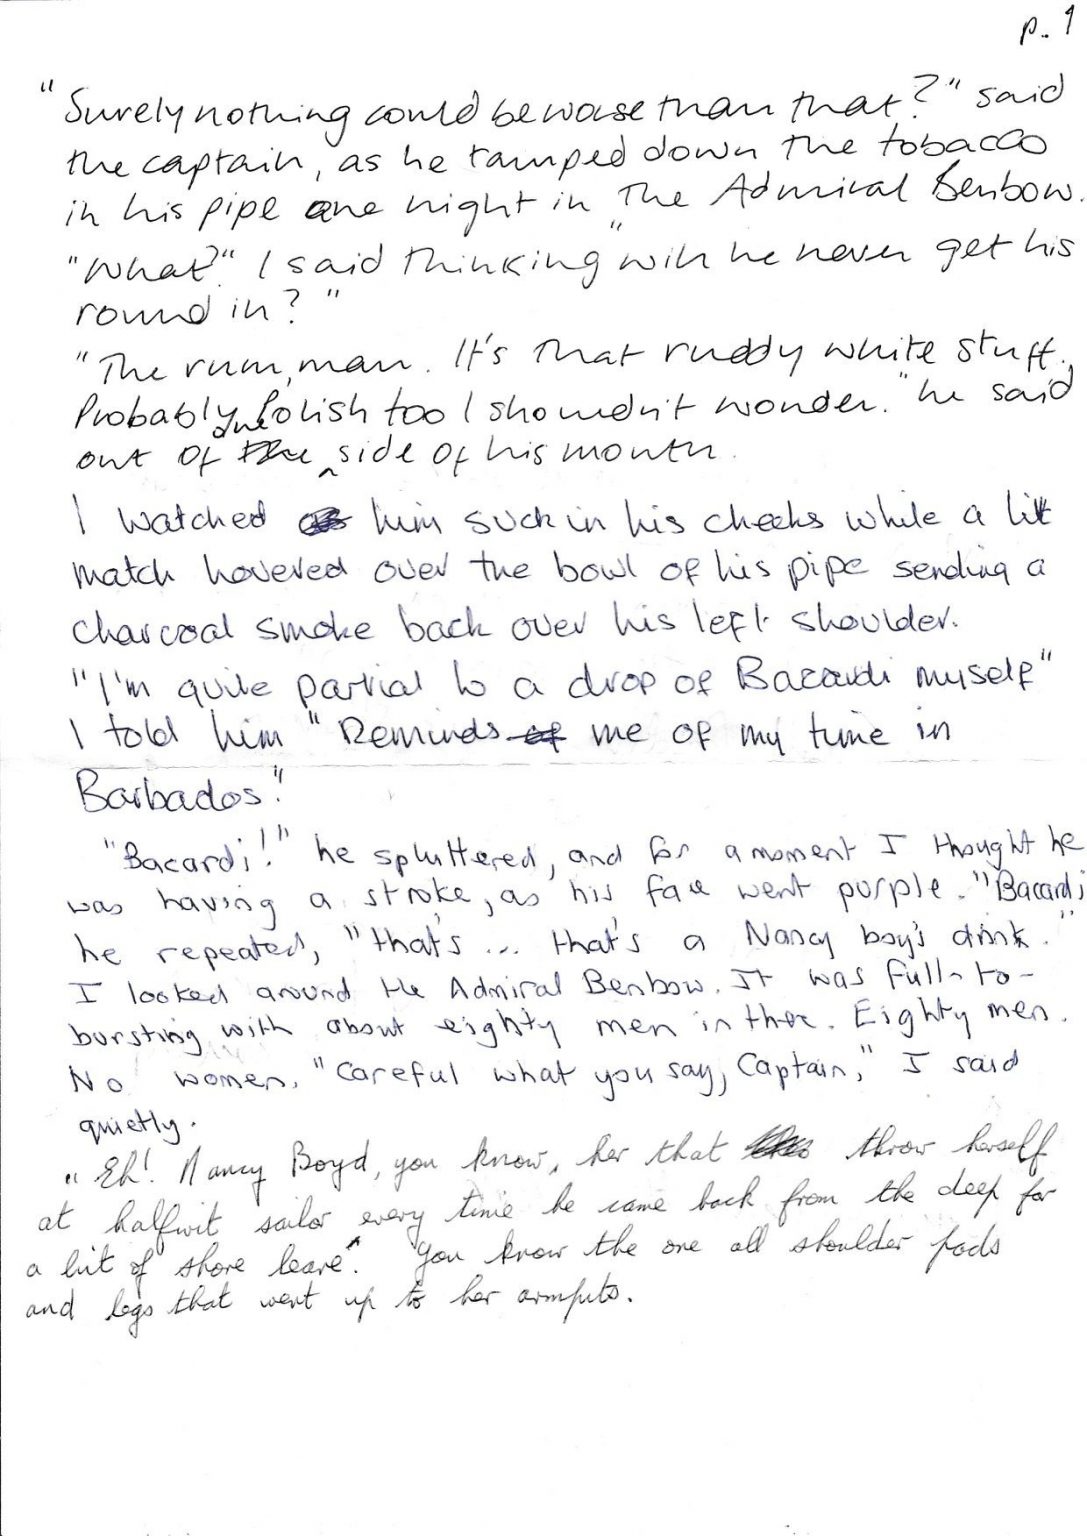 p. 1
"Surely nothing could be worse than that?" said
the captain, as he tamped down the tobacco
in his pipe one night in The Admiral Benbow.
"What?" I said thinking "will he never get his
round in?"
"The rum, man. It's that ruddy white stuff,
Probably Polish too I shouldn't wonder." he said
out of the one side of his mouth.
I watched him suck in his cheeks while a lit
match hovered over the bowl of his pipe sending a
charcoal smoke back over his left shoulder.
"I'm quite partial to a drop of Bacardi myself"
I told him "Reminds of me of my time in
Barbados."
"Bacardi!" he spluttered, and for a moment I thought he
was having a stroke, as his face went purple. "Bacardi
he repeated, "that's... that's a Nancy boy's drink."
I looked around the Admiral Benbow. It was full-to-
bursting with about eighty men in there. Eighty men.
No women. "Careful what you say, Captain," I said
quietly.
"Eh! Nancy Boyd, you know, her that throw herself
at halfwit sailor every time he came back from the deep for
a bit of shore leave". "You know the one all shoulder pads
and legs that went up to her armpits.